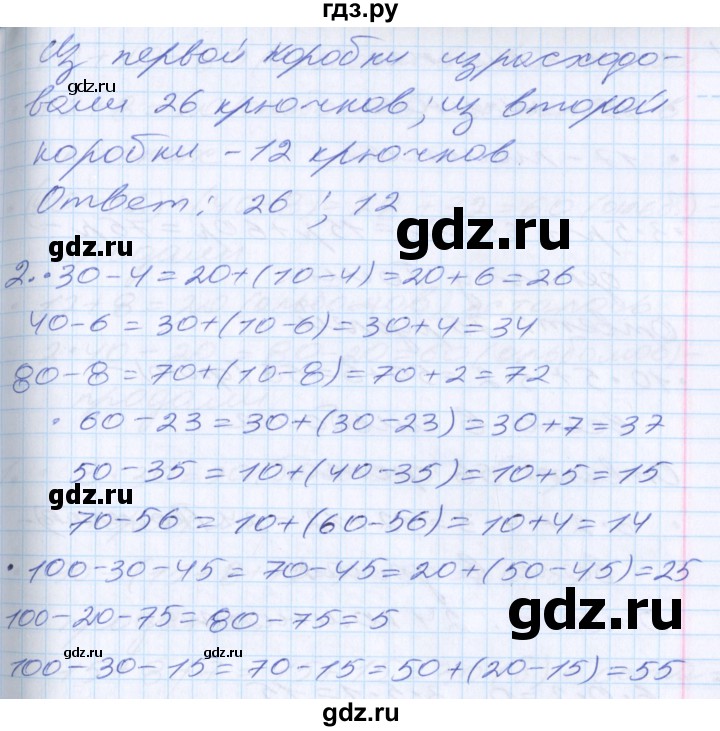 гдз.ру
Из первой коробки израсходо-
вали 26 крючков; из второй
коробки - 12 крючков.
Ответ: 26; 12
gdz.ru
gdz.ru
gdz.ru
2. • 30 - 4 = 20 + (10 - 4) = 20 + 6 = 26
40 - 6 = 30 + (10 - 6) = 30 + 4 = 34
80 - 8 = 70 + (10 - 8) = 70 + 2 = 72
• 60 - 23 = 30 + (30 - 23) = 30 + 7 = 37
gdz.ru
50 - 35 = 10 + (40 - 35) = 10 + 5 = 15
gdz.ru
70 - 56 = 10 + (60 - 56) = 10 + 4 = 14
• 100 - 30 - 45 = 70 - 45 = 20 + (50 - 45) = 25
gdz.ru
100 - 20 - 75 = 80 - 75 = 5
gdz.ru
gdz.ru
gdz.ru
100 - 30 - 15 = 70 - 15 = 50 + (20 - 15) = 55
gdz.ru
gdz.ru